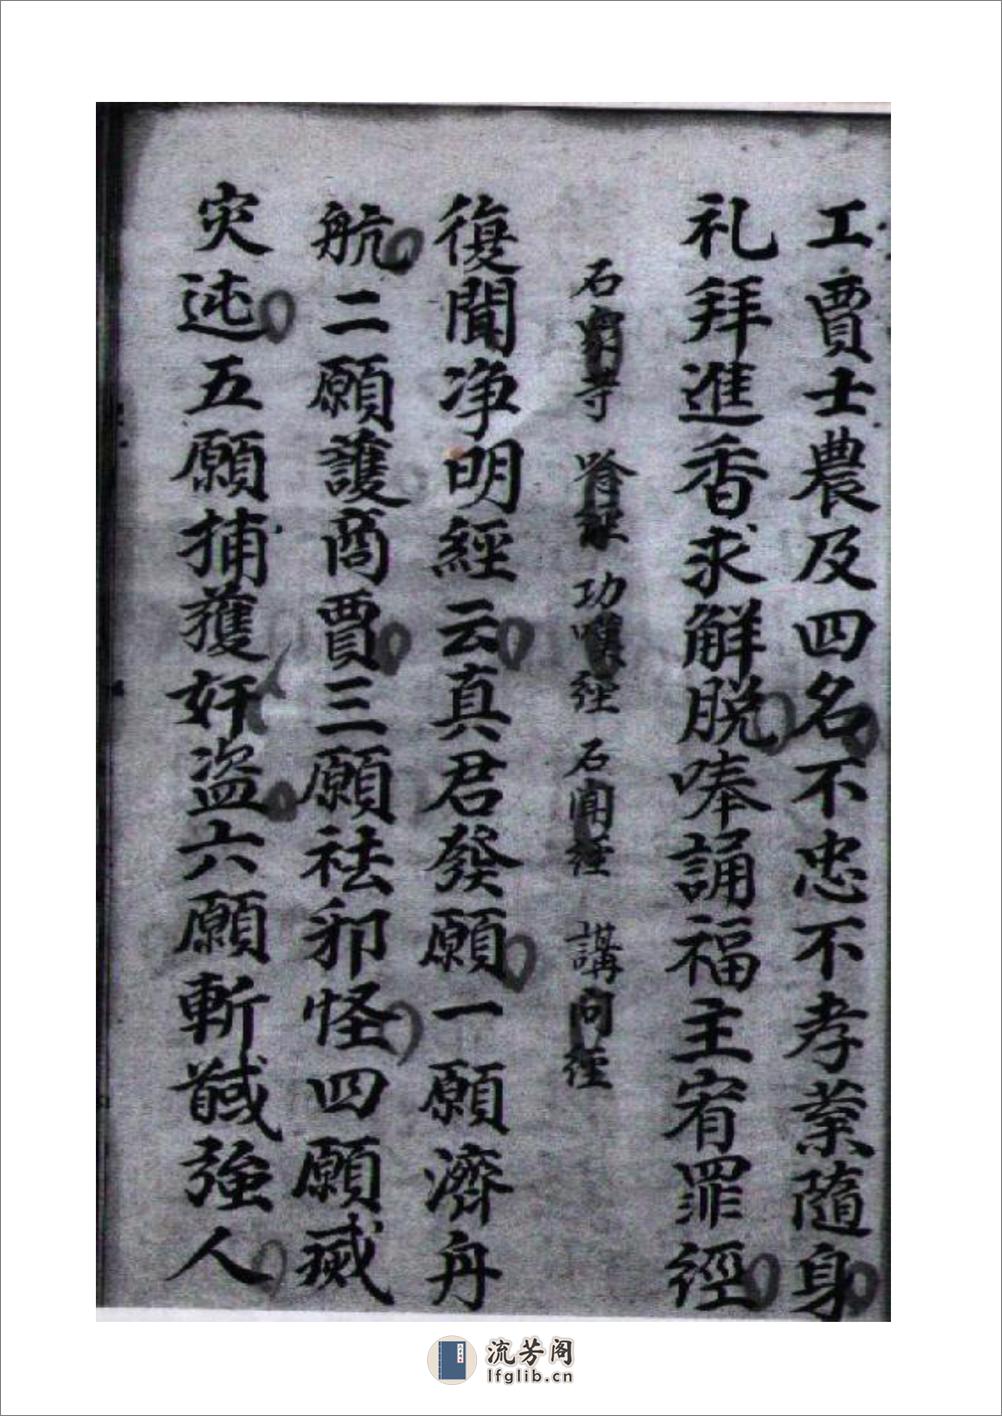 工賈士農及四名不忠不孝業隨身
礼拜進香求解脱唪誦福主宥罪經
石 寺 功 經 石聞經 講 經
復聞净明經云真君發願一願濟舟
航二願護商賈三願祛邪怪四願滅
灾迍五願捕獲奸盗六願斬馘強人
流芳阁
lfglib.cn